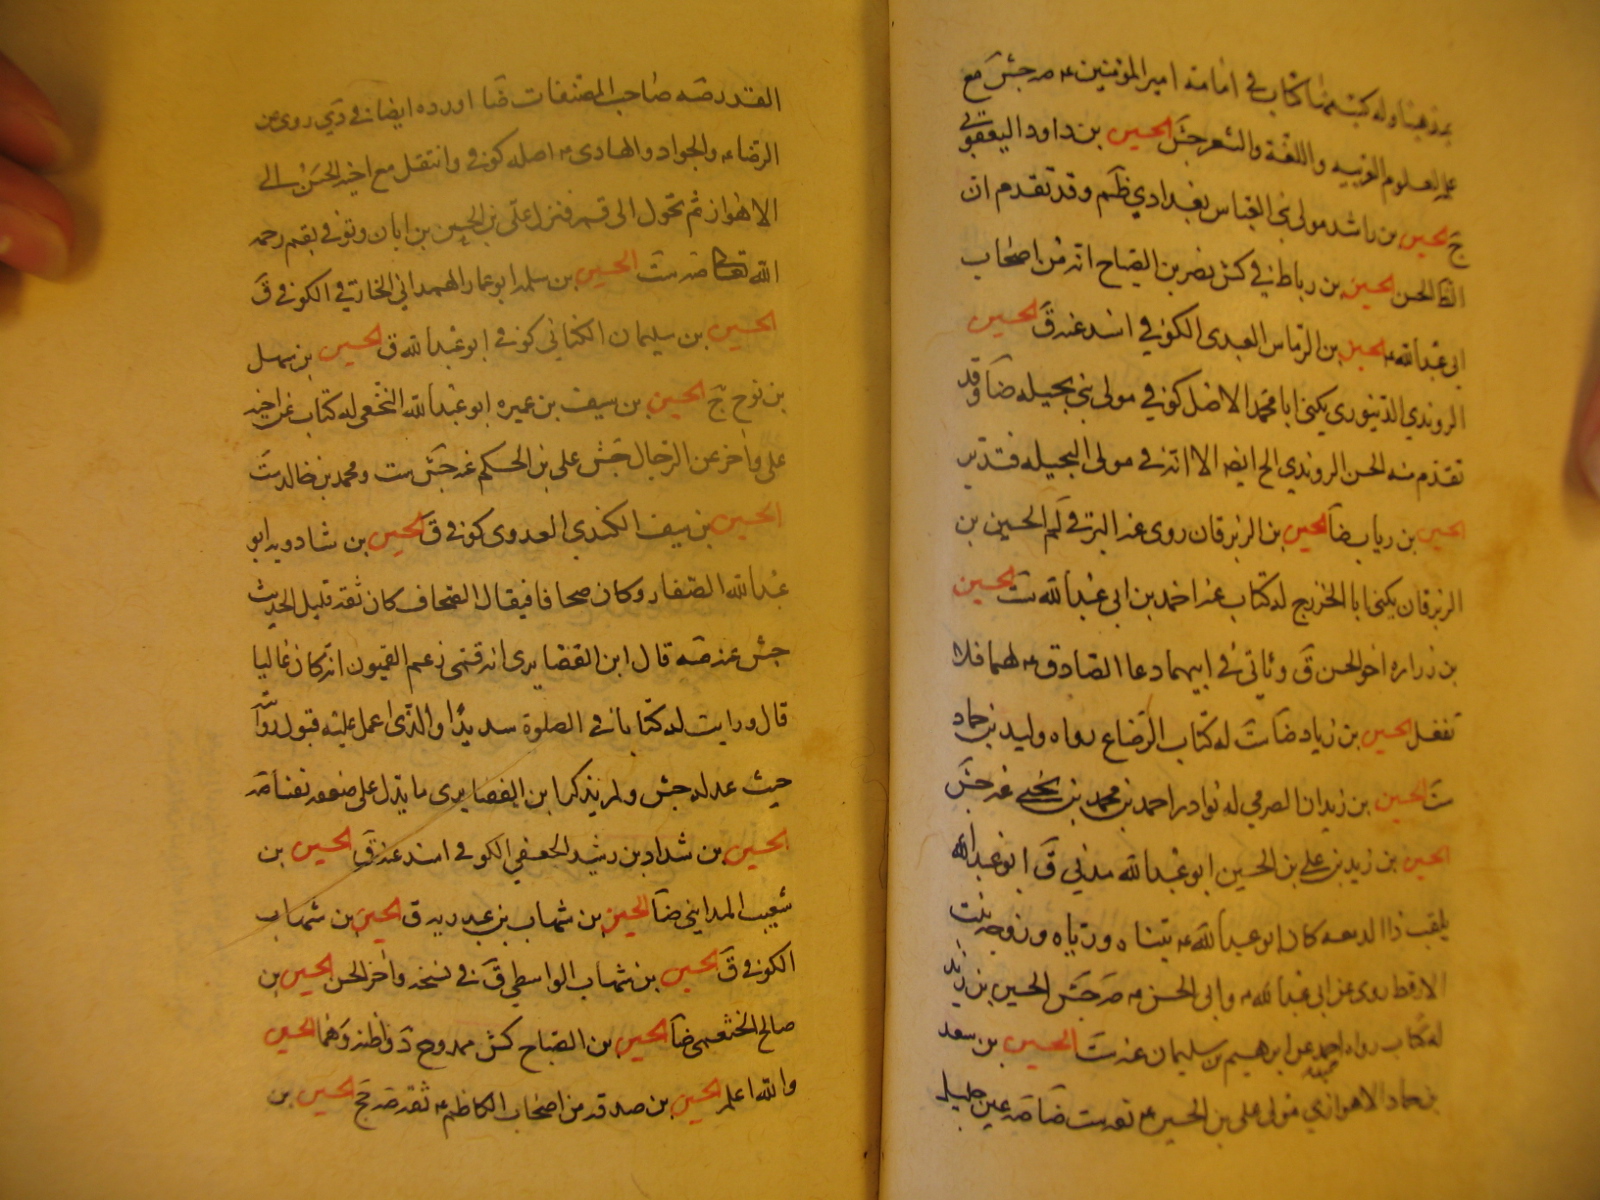 بمذهبنا وله كتب منها كتاب في امامة امير المؤمنين ع صه جش مع
علمه العلوم العربيه واللغة والشعر جش الحسين بن داود اليعقوبي
ج الحسين بن راشد مولى بني العباس بغدادي ظم وقد تقدم ان
الحسن الحسين بن رباط في كش نصر بن الصباح انه من اصحاب
ابي عبد الله ع الحسين بن الرماس العبدي الكوفي اسند عنه ق الحسين
الروندي الدينوري يكنى ابا محمد الاصل كوفي مولى بني بجيله ضا وقد
تقدم منه الحسن الروندي الخ ايضه الا انه في مولى البجيله فتدبر
الحسين بن رياب ضا الحسين بن الزبرقان روى عنه البرقي لم الحسين بن
الزبرقان يكنى ابا الخزرج له كتاب عنه احمد بن ابي عبد الله ست الحسين
بن زراره اخو الحسن ق وياتي في ابيهما دعا الصادق ع لهما فلا
تغفل الحسين بن زياد ضا ست له كتاب الرضاع رواه وليد بن حماد
ست الحسين بن زيدان الصرمي له نوادر احمد بن محمد بن يحيى عنه جش
الحسين بن زيد بن علي بن الحسين ابو عبد الله مدني ق ابو عبد الله
يلقب ذا الدمعه كان ابو عبد الله ع تبناه ورباه وزوجه بنت
الارقط روى عن ابي عبد الله ع وابي الحسن ع صه جش الحسين بن زيد
له كتاب رواه حميد عن ابرهيم بن سليمان عنه ست الحسين بن سعيد
بن حماد الاهوازي مولى علي بن الحسين ع ثقه ست ضا صه عين جليل
القدر صه صاحب المصنفات ضا اورده ايضا في دي روى عن
الرضا ع والجواد والهادي ع اصله كوفي وانتقل مع اخيه الحسن الى
الاهواز ثم تحول الى قم فنزل على بن الحسين بن ابان وتوفي بقم رحمه
الله تعالى صه ست الحسين بن سلمه ابو عمار الهمداني الخارقي الكوفي ق
الحسين بن سليمان الكناني كوفي ابو عبد الله ق الحسين بن سهل
بن نوح ج الحسين بن سيف بن عميره ابو عبد الله النخعي له كتاب عن اخيه
علي واخر عن الرجال جش علي بن الحكم عنه جش ست ومحمد بن خالد ست
الحسين بن سيف الكندي العدوي كوفي ق الحسين بن شادويه ابو
عبد الله الصفار وكان صحافا فيقال الصحاف كان ثقه قليل الحديث
جش عنه صه قال ابن الغضايري انه قمي زعم القميون انه كان غاليا
قال ورايت له كتابا في الصلوة سديدا والذي اعمل عليه قبول روايته
حيث عدله جش ولم يذكر ابن الغضايري ما يدل على ضعفه نصا صه
الحسين بن شداد بن رشيد الجعفي الكوفي اسند عنه ق الحسين بن
شعيب المدايني ضا الحسين بن شهاب بن عبد ربه ق الحسين بن شهاب
الكوفي ق الحسين بن شهاب الواسطي ق في نسخه واخر الحسن الحسين بن
صالح الخثعمي ضا الحسين بن الصباح كش ممدوح د واظنه وهما الحسين
والله اعلم الحسين بن صدقه من اصحاب الكاظم ع ثقه صه جخ الحسين بن